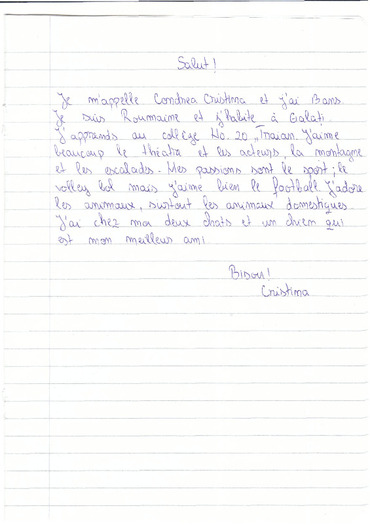 Salut!
Je m'appelle Condrea Cristina et j'ai 13 ans
Je suis Roumaine et j'habite à Galati.
J'apprands au collège No. 20 „Traian. J'aime
beaucoup le théatre et les acteurs, la montagne
et les escalades. Mes passions sont le sport; le
volley bol mais j'aime bien le football J'adore
les animaux, surtout les animaux domestiques.
J'ai chez moi deux chats et un chien qui
est mon meilleur ami
Bisou!
Cristina